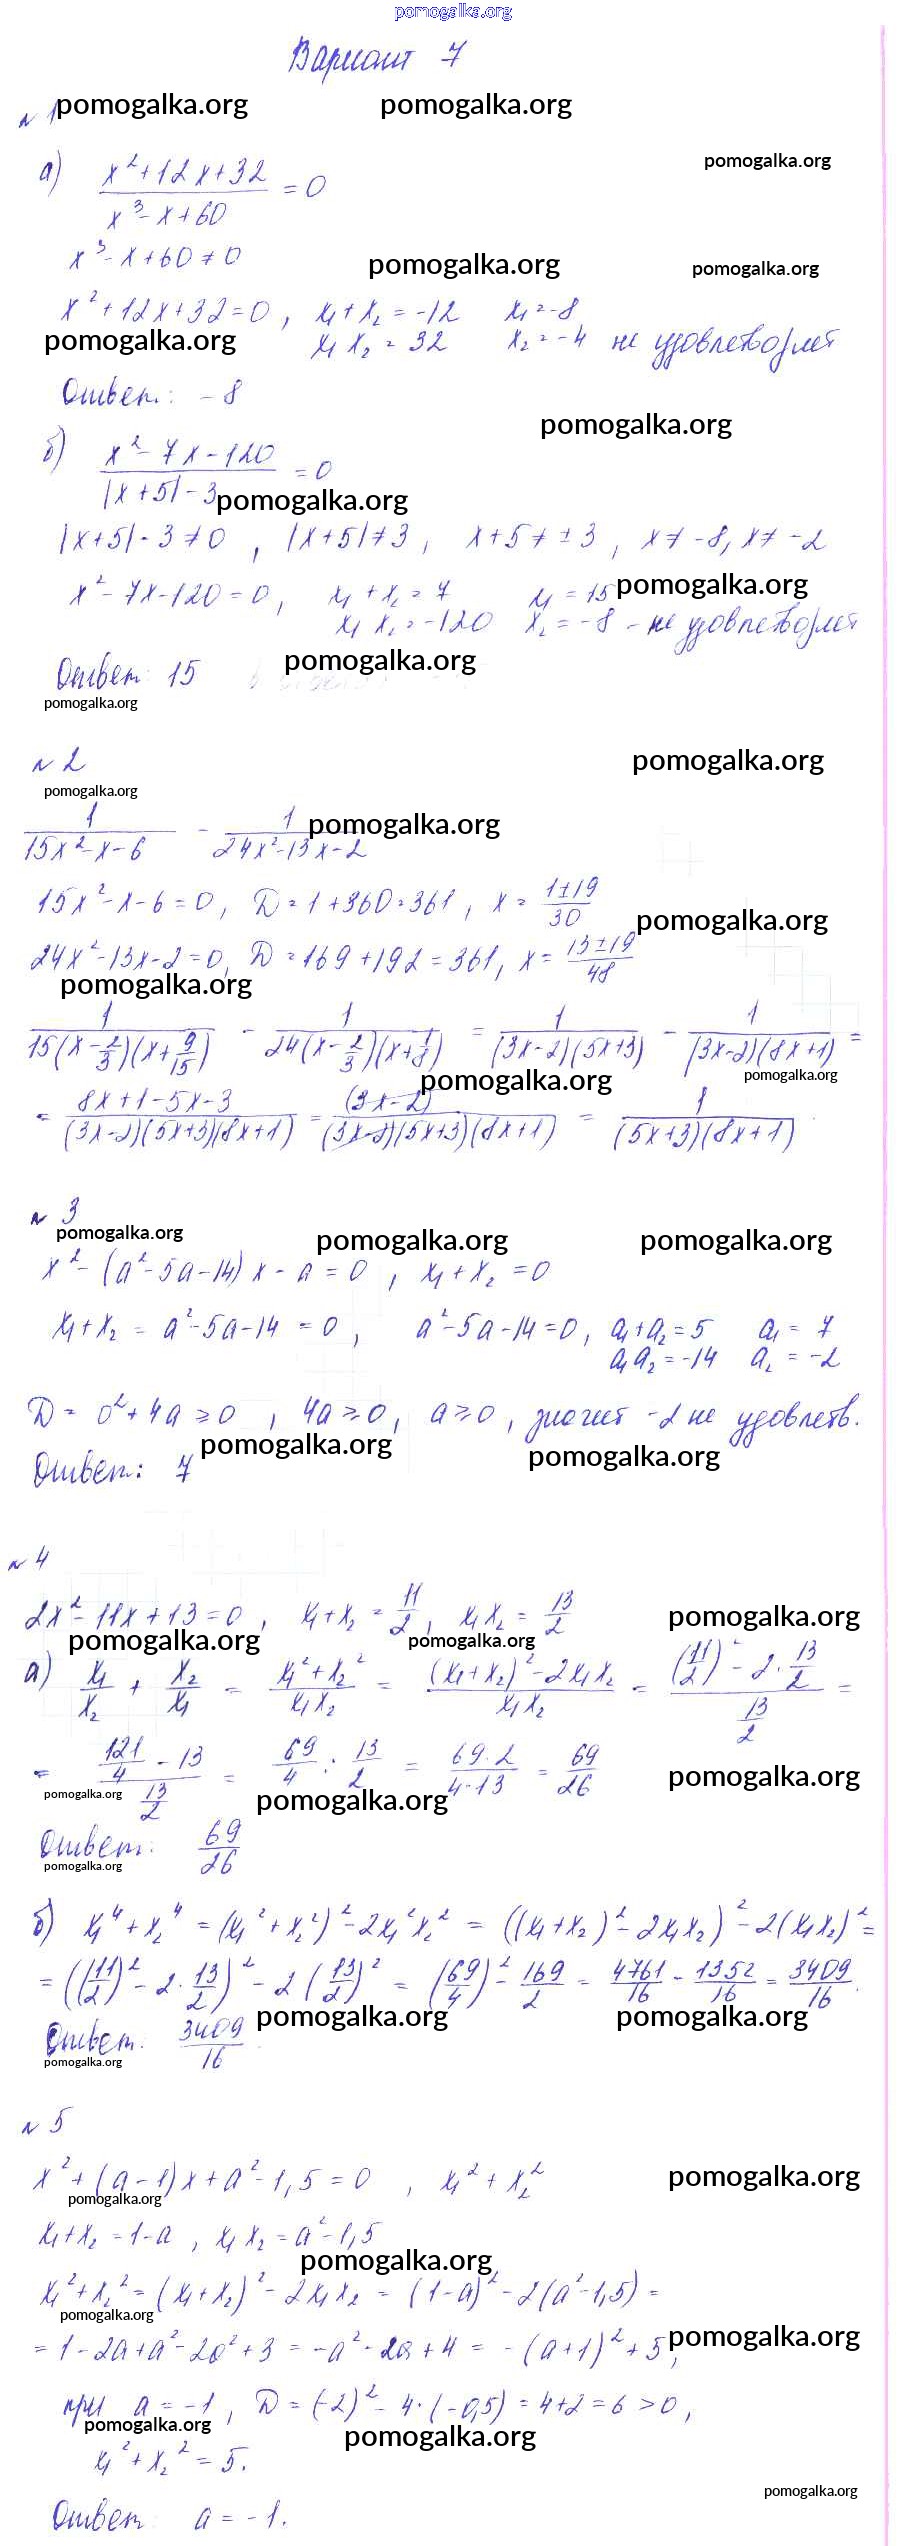 pomogalka.org
Вариант 7
№ 1 pomogalka.org pomogalka.org
pomogalka.org
а) (x² + 12x + 32)/(x³ - x + 60) = 0
x³ - x + 60 ≠ 0
pomogalka.org pomogalka.org
x² + 12x + 32 = 0, x₁ + x₂ = -12 x₁ = -8
pomogalka.org x₁ x₂ = 32 x₂ = -4 не удовлетворяет
Ответ: -8
pomogalka.org
б) (x² - 7x - 120)/(|x + 5| - 3) = 0
pomogalka.org
|x + 5| - 3 ≠ 0, |x + 5| ≠ 3, x + 5 ≠ ± 3, x ≠ -8, x ≠ -2
x² - 7x - 120 = 0, x₁ + x₂ = 7 x₁ = 15 pomogalka.org
x₁ x₂ = -120 x₂ = -8 - не удовлетворяет
Ответ: 15 pomogalka.org
pomogalka.org
№ 2 pomogalka.org
pomogalka.org
1/(15x² - x - 6) - 1/(24x² - 13x - 2) pomogalka.org
15x² - x - 6 = 0, D = 1 + 360 = 361, x = (1 ± 19)/30
pomogalka.org
24x² - 13x - 2 = 0, D = 169 + 192 = 361, x = (13 ± 19)/48
pomogalka.org
1/(15(x - 2/3)(x + 9/15)) - 1/(24(x - 2/3)(x + 1/8)) = 1/((3x - 2)(5x + 3)) - 1/((3x - 2)(8x + 1)) =
pomogalka.org pomogalka.org
= (8x + 1 - 5x - 3)/((3x - 2)(5x + 3)(8x + 1)) = (3x - 2)/((3x - 2)(5x + 3)(8x + 1)) = 1/((5x + 3)(8x + 1)).
№ 3
pomogalka.org pomogalka.org pomogalka.org
x² - (a² - 5a - 14)x - a = 0, x₁ + x₂ = 0
x₁ + x₂ = a² - 5a - 14 = 0, a² - 5a - 14 = 0, a₁ + a₂ = 5 a₁ = 7
a₁ a₂ = -14 a₂ = -2
D = 0² + 4a ≥ 0, 4a ≥ 0, a ≥ 0, значит -2 не удовлетв.
pomogalka.org pomogalka.org
Ответ: 7
№ 4
2x² - 11x + 13 = 0, x₁ + x₂ = 11/2, x₁ x₂ = 13/2 pomogalka.org
pomogalka.org pomogalka.org
а) x₁/x₂ + x₂/x₁ = (x₁² + x₂²)/(x₁ x₂) = ((x₁ + x₂)² - 2x₁ x₂)/(x₁ x₂) = ((11/2)² - 2 · 13/2)/(13/2) =
= (121/4 - 13)/(13/2) = 69/4 : 13/2 = (69 · 2)/(4 · 13) = 69/26 pomogalka.org
pomogalka.org pomogalka.org
Ответ: 69/26
pomogalka.org
б) x₁⁴ + x₂⁴ = (x₁² + x₂²)² - 2x₁² x₂² = ((x₁ + x₂)² - 2x₁ x₂)² - 2(x₁ x₂)² =
= ((11/2)² - 2 · 13/2)² - 2(13/2)² = (69/4)² - 169/2 = 4761/16 - 1352/16 = 3409/16.
pomogalka.org pomogalka.org
Ответ: 3409/16.
pomogalka.org
№ 5
x² + (a - 1)x + a² - 1,5 = 0, x₁² + x₂² pomogalka.org
pomogalka.org
x₁ + x₂ = 1 - a, x₁ x₂ = a² - 1,5
pomogalka.org
x₁² + x₂² = (x₁ + x₂)² - 2x₁ x₂ = (1 - a)² - 2(a² - 1,5) =
pomogalka.org
= 1 - 2a + a² - 2a² + 3 = -a² - 2a + 4 = -(a + 1)² + 5, pomogalka.org
при a = -1, D = (-2)² - 4 · (-0,5) = 4 + 2 = 6 > 0,
pomogalka.org pomogalka.org
x₁² + x₂² = 5.
pomogalka.org
Ответ: a = -1.